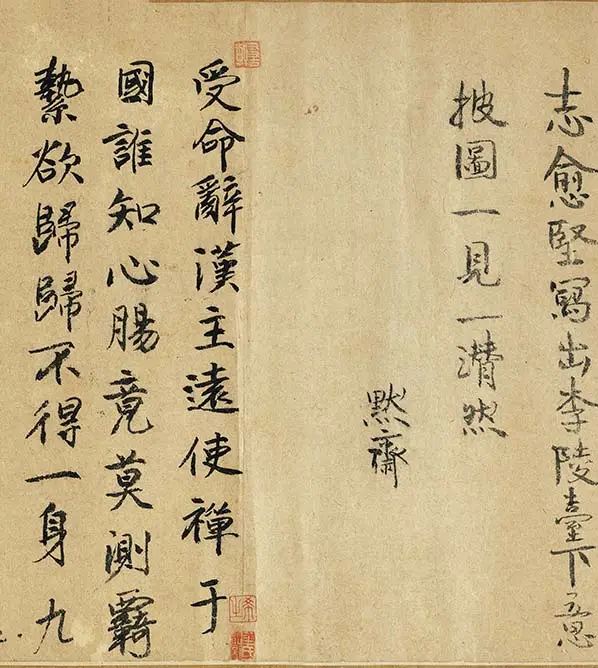 志愈堅寫出李陵臺下意
披圖一見一潸然
默齋
受命辭漢主遠使禪于
國誰知心腸竟莫測覊
縶欲歸歸不得一身九